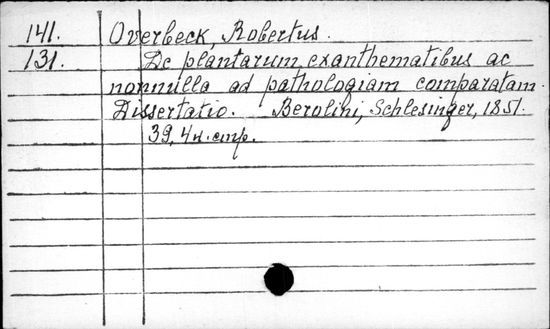 141. Overbeck, Robertus.
131. De plantarum exanthematibus ac
nonnulla ad pathologiam comparatam.
Dissertatio. Berolini, Schlesinger, 1851.
39, 4 н. стр.